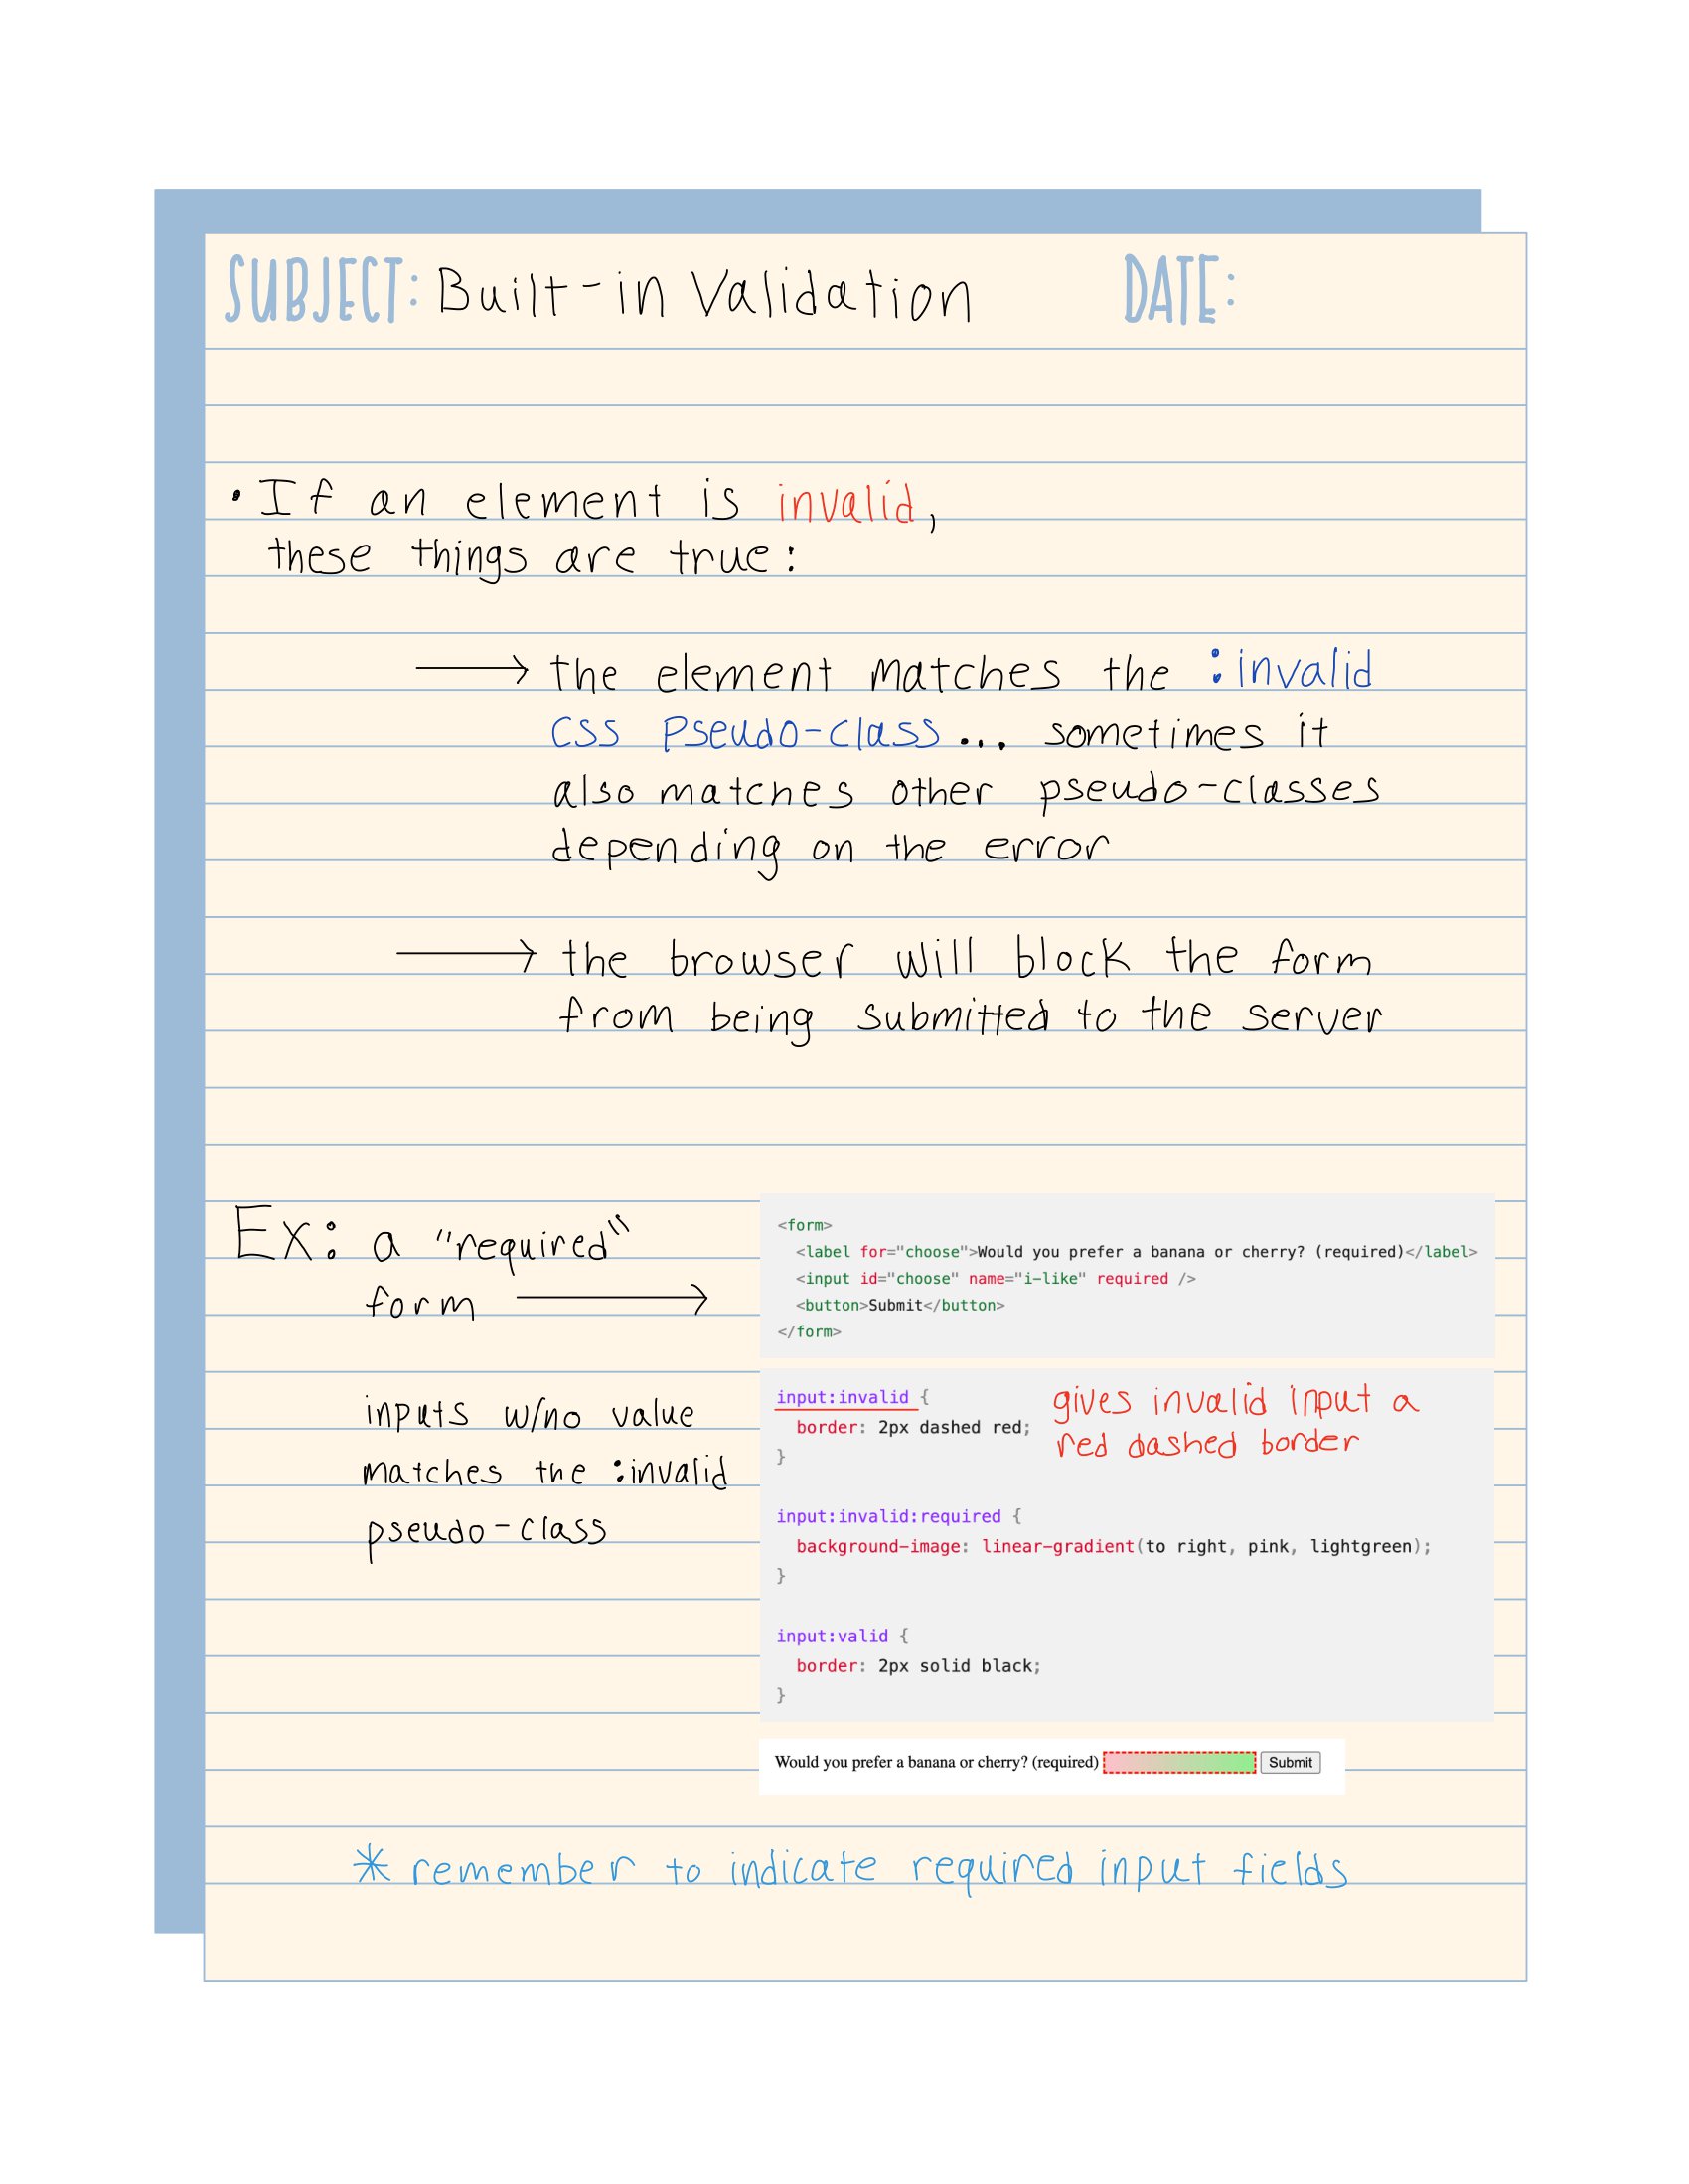 SUBJECT: Built-in Validation DATE:
• If an element is invalid,
these things are true:
→ the element matches the :invalid
CSS pseudo-class... sometimes it
also matches other pseudo-classes
depending on the error
→ the browser will block the form
from being submitted to the server
Ex: a "required"
form →
inputs w/no value
matches the :invalid
pseudo-class
<form>
<label for="choose">Would you prefer a banana or cherry? (required)</label>
<input id="choose" name="i-like" required />
<button>Submit</button>
</form>
input:invalid {
border: 2px dashed red;
}
gives invalid input a
red dashed border
input:invalid:required {
background-image: linear-gradient(to right, pink, lightgreen);
}
input:valid {
border: 2px solid black;
}
Would you prefer a banana or cherry? (required) Submit
* remember to indicate required input fields